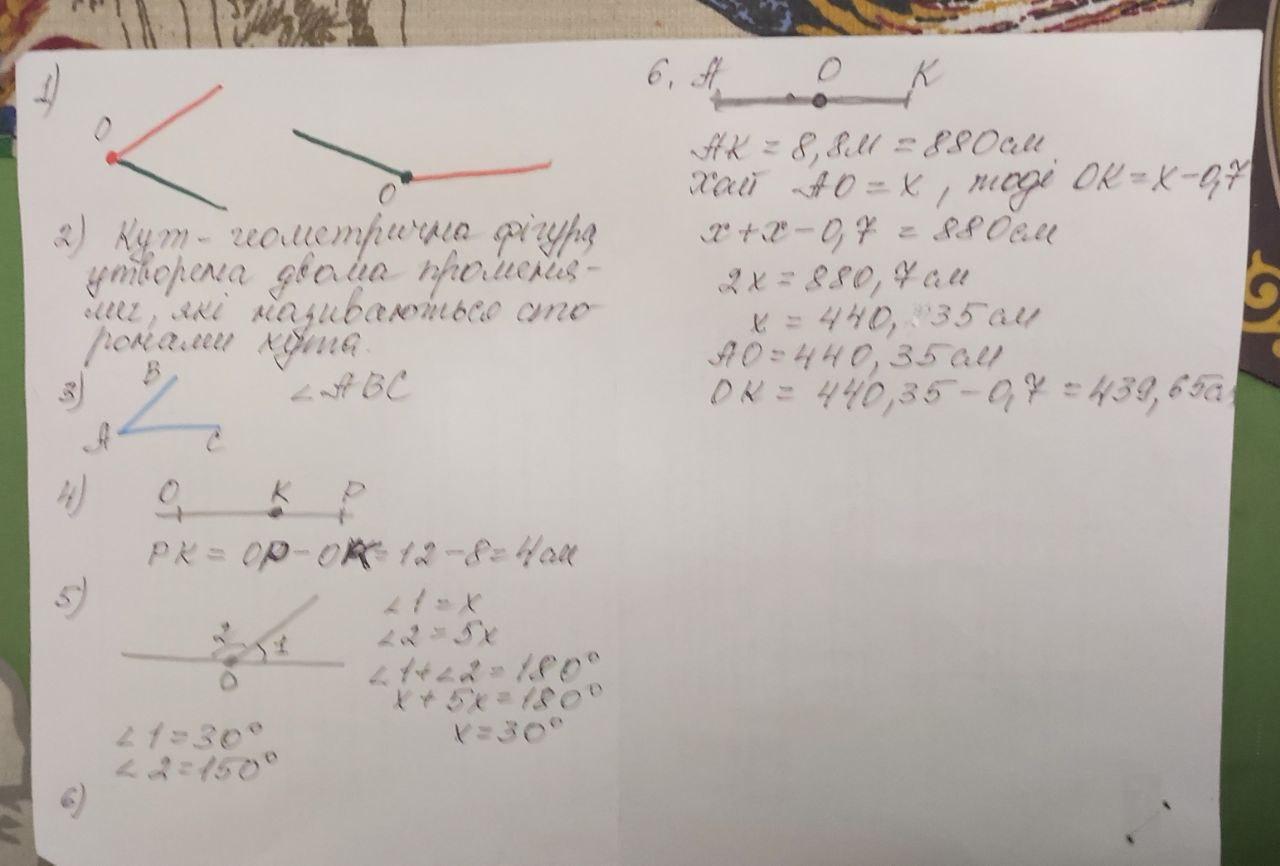 1)
O
O
2) Кут - геометрична фігура,
утворена двома променя-
ми, які називаються сто-
ронами кута.
3)
B
∠ABC
A
C
4)
O K P
PK = OP - OK = 12 - 8 = 4 см
5)
∠1 = x
∠2 = 5x
2 1
O
∠1 + ∠2 = 180°
x + 5x = 180°
x = 30°
∠1 = 30°
∠2 = 150°
6)
6. A O K
AK = 8,8м = 880 см
хай AO = x, тоді OK = x - 0,7
x + x - 0,7 = 880 см
2x = 880,7 см
x = 440,35 см
AO = 440,35 см
OK = 440,35 - 0,7 = 439,65 см